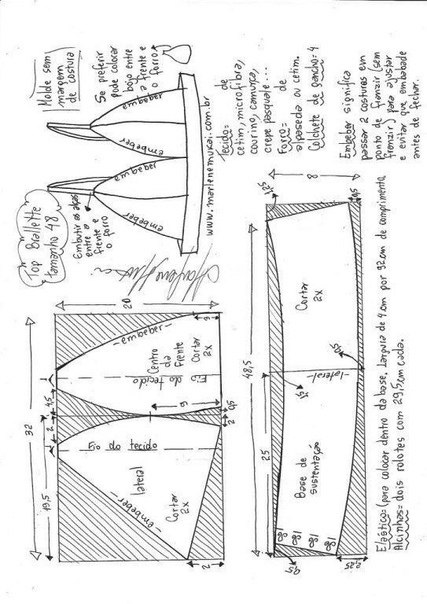 Top Brallette
tamanho 48
Molde sem
margem
de costura
Se preferir
pode colocar
bojo entre
a frente e
o forro
Embutir as alças
entre a
frente e
o forro
embeber
embeber
embeber
embeber
www.marlenemukai.com.br
Tecido: de
cetim, microfibra,
courino, camurça,
crepe pasquale...
Forro: de
alpaseda ou cetim.
Colchete de gancho: 4
Embeber significa
passar 2 costuras em
ponto de franzir (sem
franzir) para ajustar
e evitar que embabade
antes de fechar.
32
19,5
2
4,5
1
20
embeber
Centro
da
frente
Cortar
2x
Fio
do tecido
9
9
Fio do tecido
lateral
Cortar
2x
embeber
2
2
0,5
48,5
25
1,25
8
9,5
Cortar
2x
lateral
Base de
sustentação
180
180
180
180
9,5
9,25
Elástico: (para colocar dentro da base, largura de 4 cm por 92 cm de comprimento
Alcinhas = dois rolotes com 29,5 cm cada.